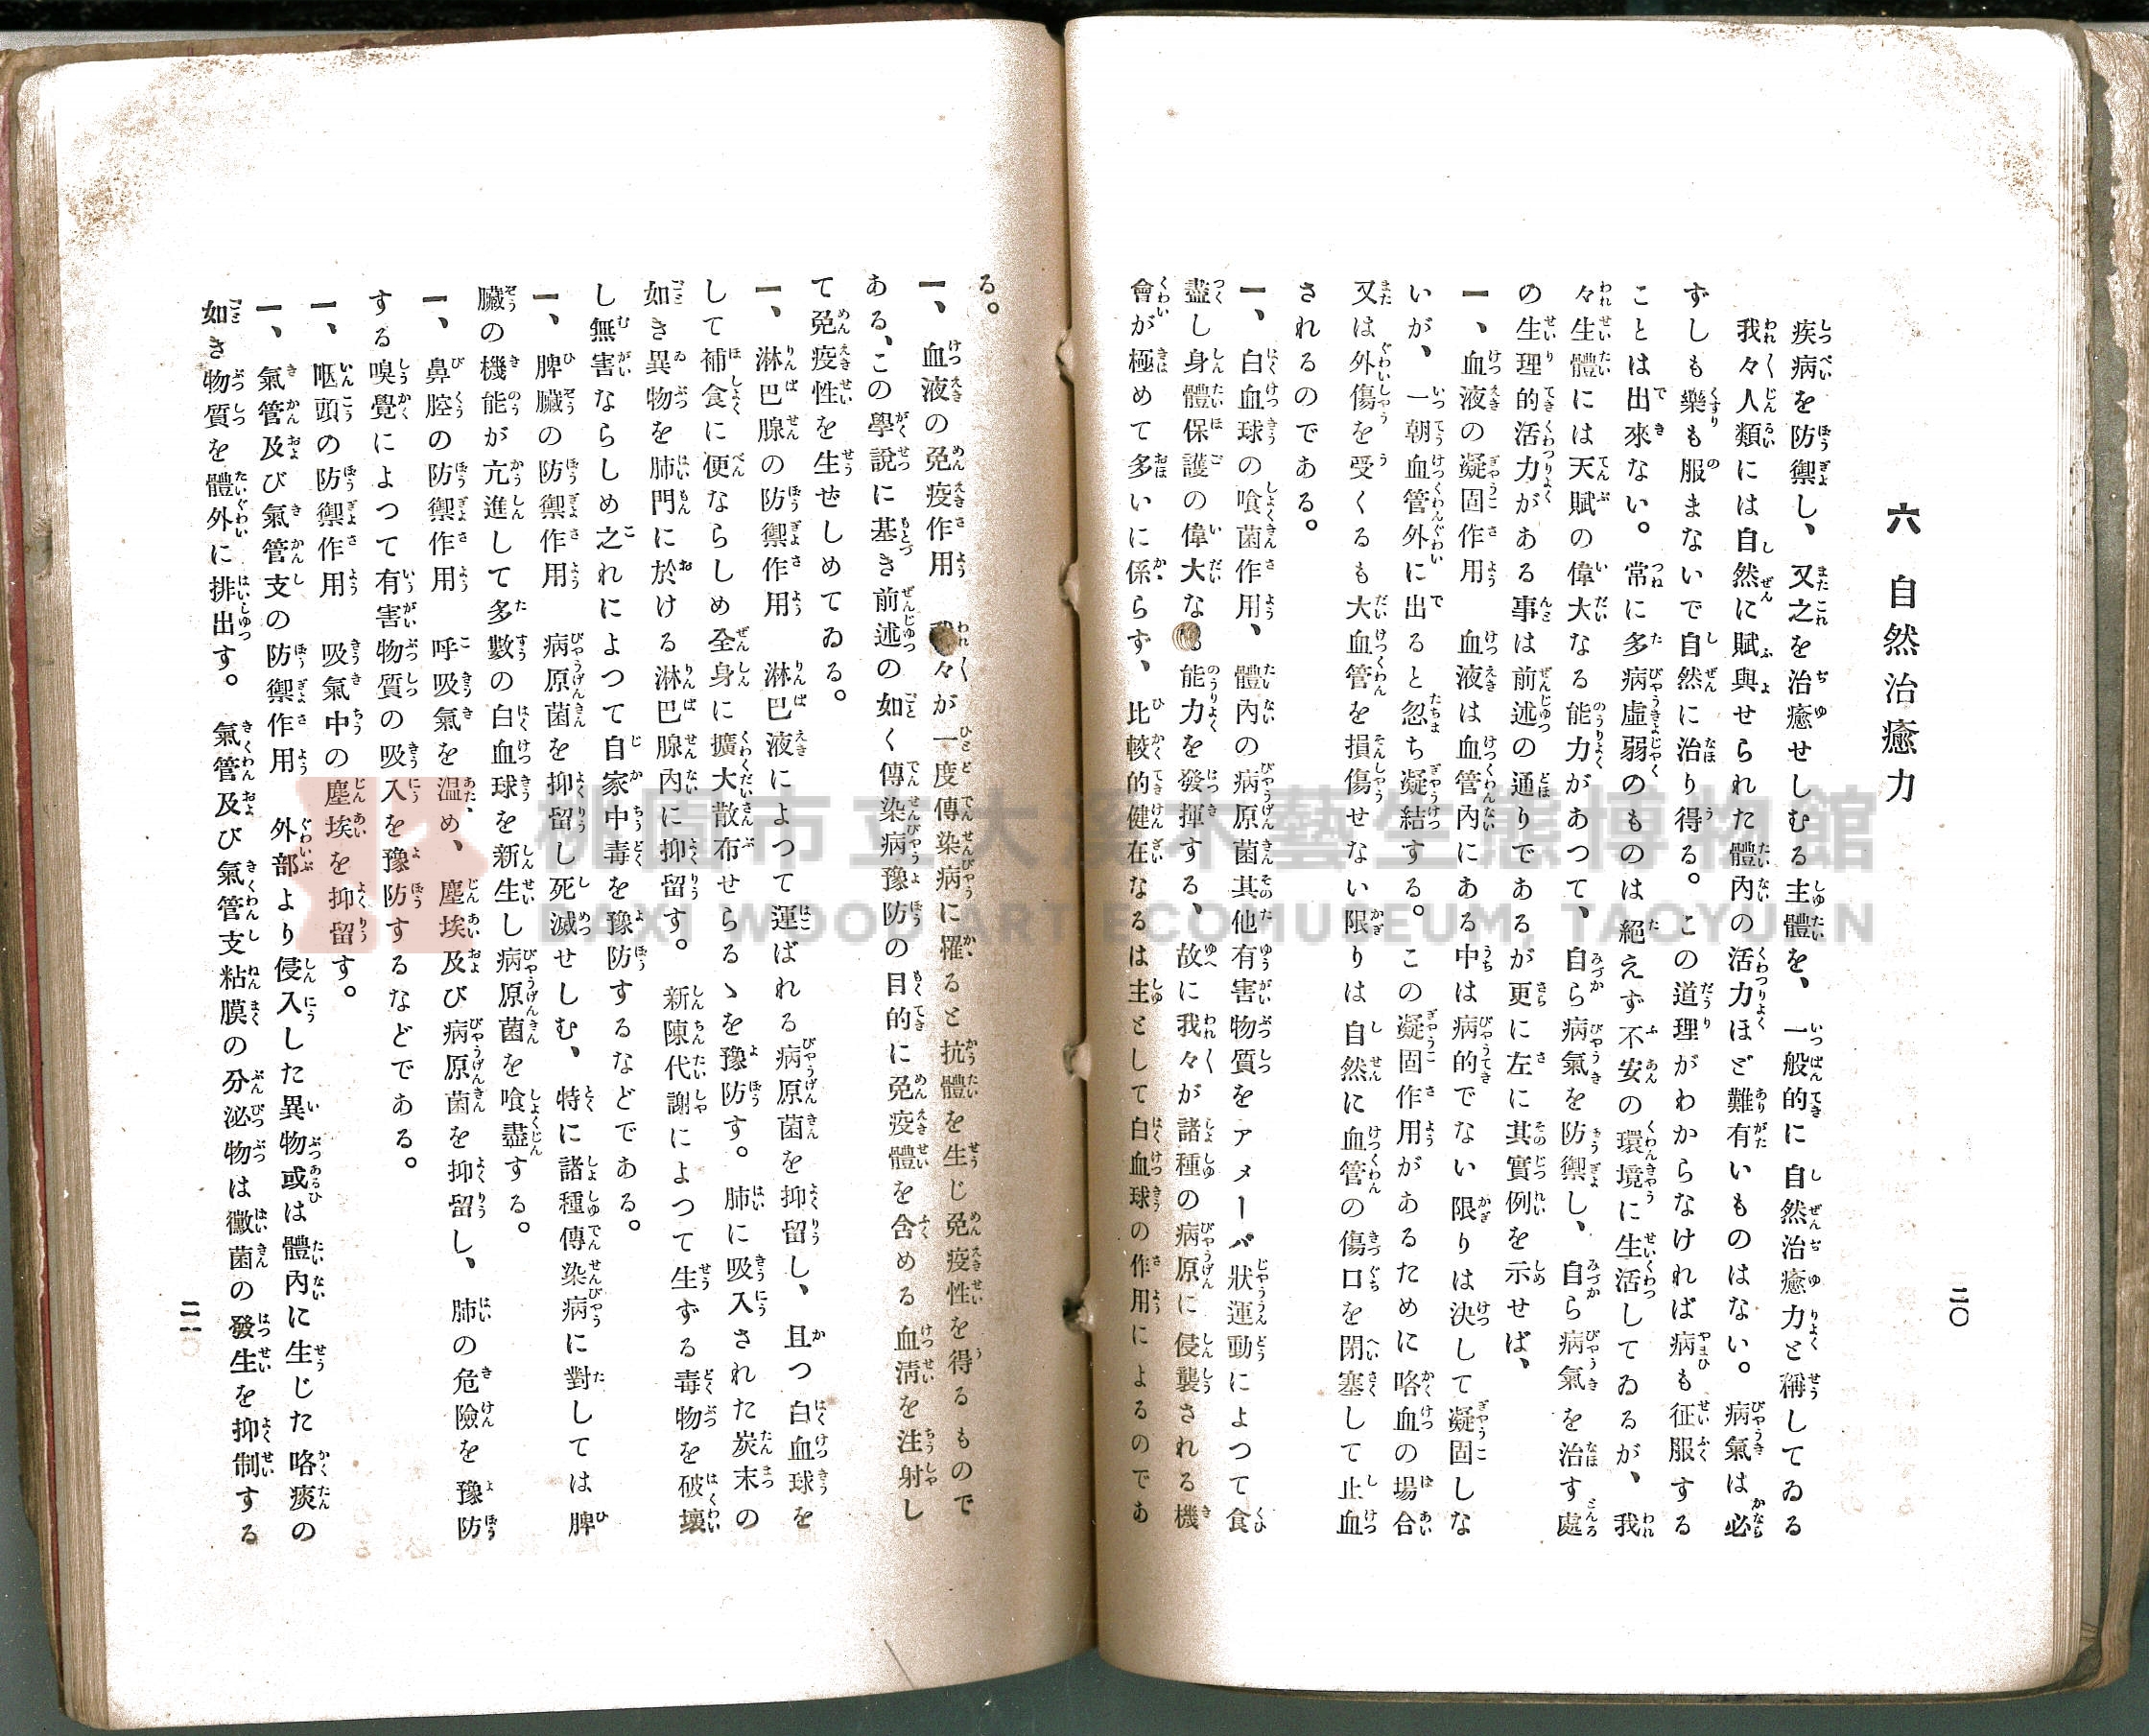 二〇
六 自然治癒力
疾病を防禦し、又之を治癒せしむる主體を、一般的に自然治癒力と稱してゐる
我々人類には自然に賦與せられた體內の活力ほど難有いものはない。病氣は必
ずしも藥も服まないで自然に治り得る。この道理がわからなければ病も征服する
ことは出來ない。常に多病虛弱のものは絕えず不安の環境に生活してゐるが、我
々生體には天賦の偉大なる能力があつて、自ら病氣を防禦し、自ら病氣を治す處
の生理的活力がある事は前述の通りであるが更に左に其實例を示せば、
一、血液の凝固作用 血液は血管內にある中は病的でない限りは決して凝固しな
いが、一朝血管外に出ると忽ち凝結する。この凝固作用があるために咯血の場合
又は外傷を受くるも大血管を損傷せない限りは自然に血管の傷口を閉塞して止血
されるのである。
一、白血球の喰菌作用、體內の病原菌其他有害物質をアメーバ狀運動によつて食
盡し身體保護の偉大な 能力を發揮する、故に我々が諸種の病原に侵襲される機
會が極めて多いに係らず、比較的健在なるは主として白血球の作用によるのであ
る。
一、血液の免疫作用 々が一度傳染病に罹ると抗體を生じ免疫性を得るもので
ある、この學說に基き前述の如く傳染病豫防の目的に免疫體を含める血淸を注射し
て免疫性を生ぜしめてゐる。
一、淋巴腺の防禦作用 淋巴液によつて運ばれる病原菌を抑留し、且つ白血球を
して補食に便ならしめ全身に擴大散布せらるゝを豫防す。肺に吸入された炭末の
如き異物を肺門に於ける淋巴腺內に抑留す。新陳代謝によつて生ずる毒物を破壞
し無害ならしめ之れによつて自家中毒を豫防するなどである。
一、脾臟の防禦作用 病原菌を抑留し死滅せしむ、特に諸種傳染病に對しては脾
臟の機能が亢進して多數の白血球を新生し病原菌を喰盡する。
一、鼻腔の防禦作用 呼吸氣を溫め、塵埃及び病原菌を抑留し、肺の危險を豫防
する嗅覺によつて有害物質の吸入を豫防するなどである。
一、咽頭の防禦作用 吸氣中の塵埃を抑留す。
一、氣管及び氣管支の防禦作用 外部より侵入した異物或は體內に生じた咯痰の
如き物質を體外に排出す。氣管及び氣管支粘膜の分泌物は黴菌の發生を抑制する
二一
桃園市立大溪木藝生態博物館
DAXI WOOD ART ECOMUSEUM, TAOYUAN